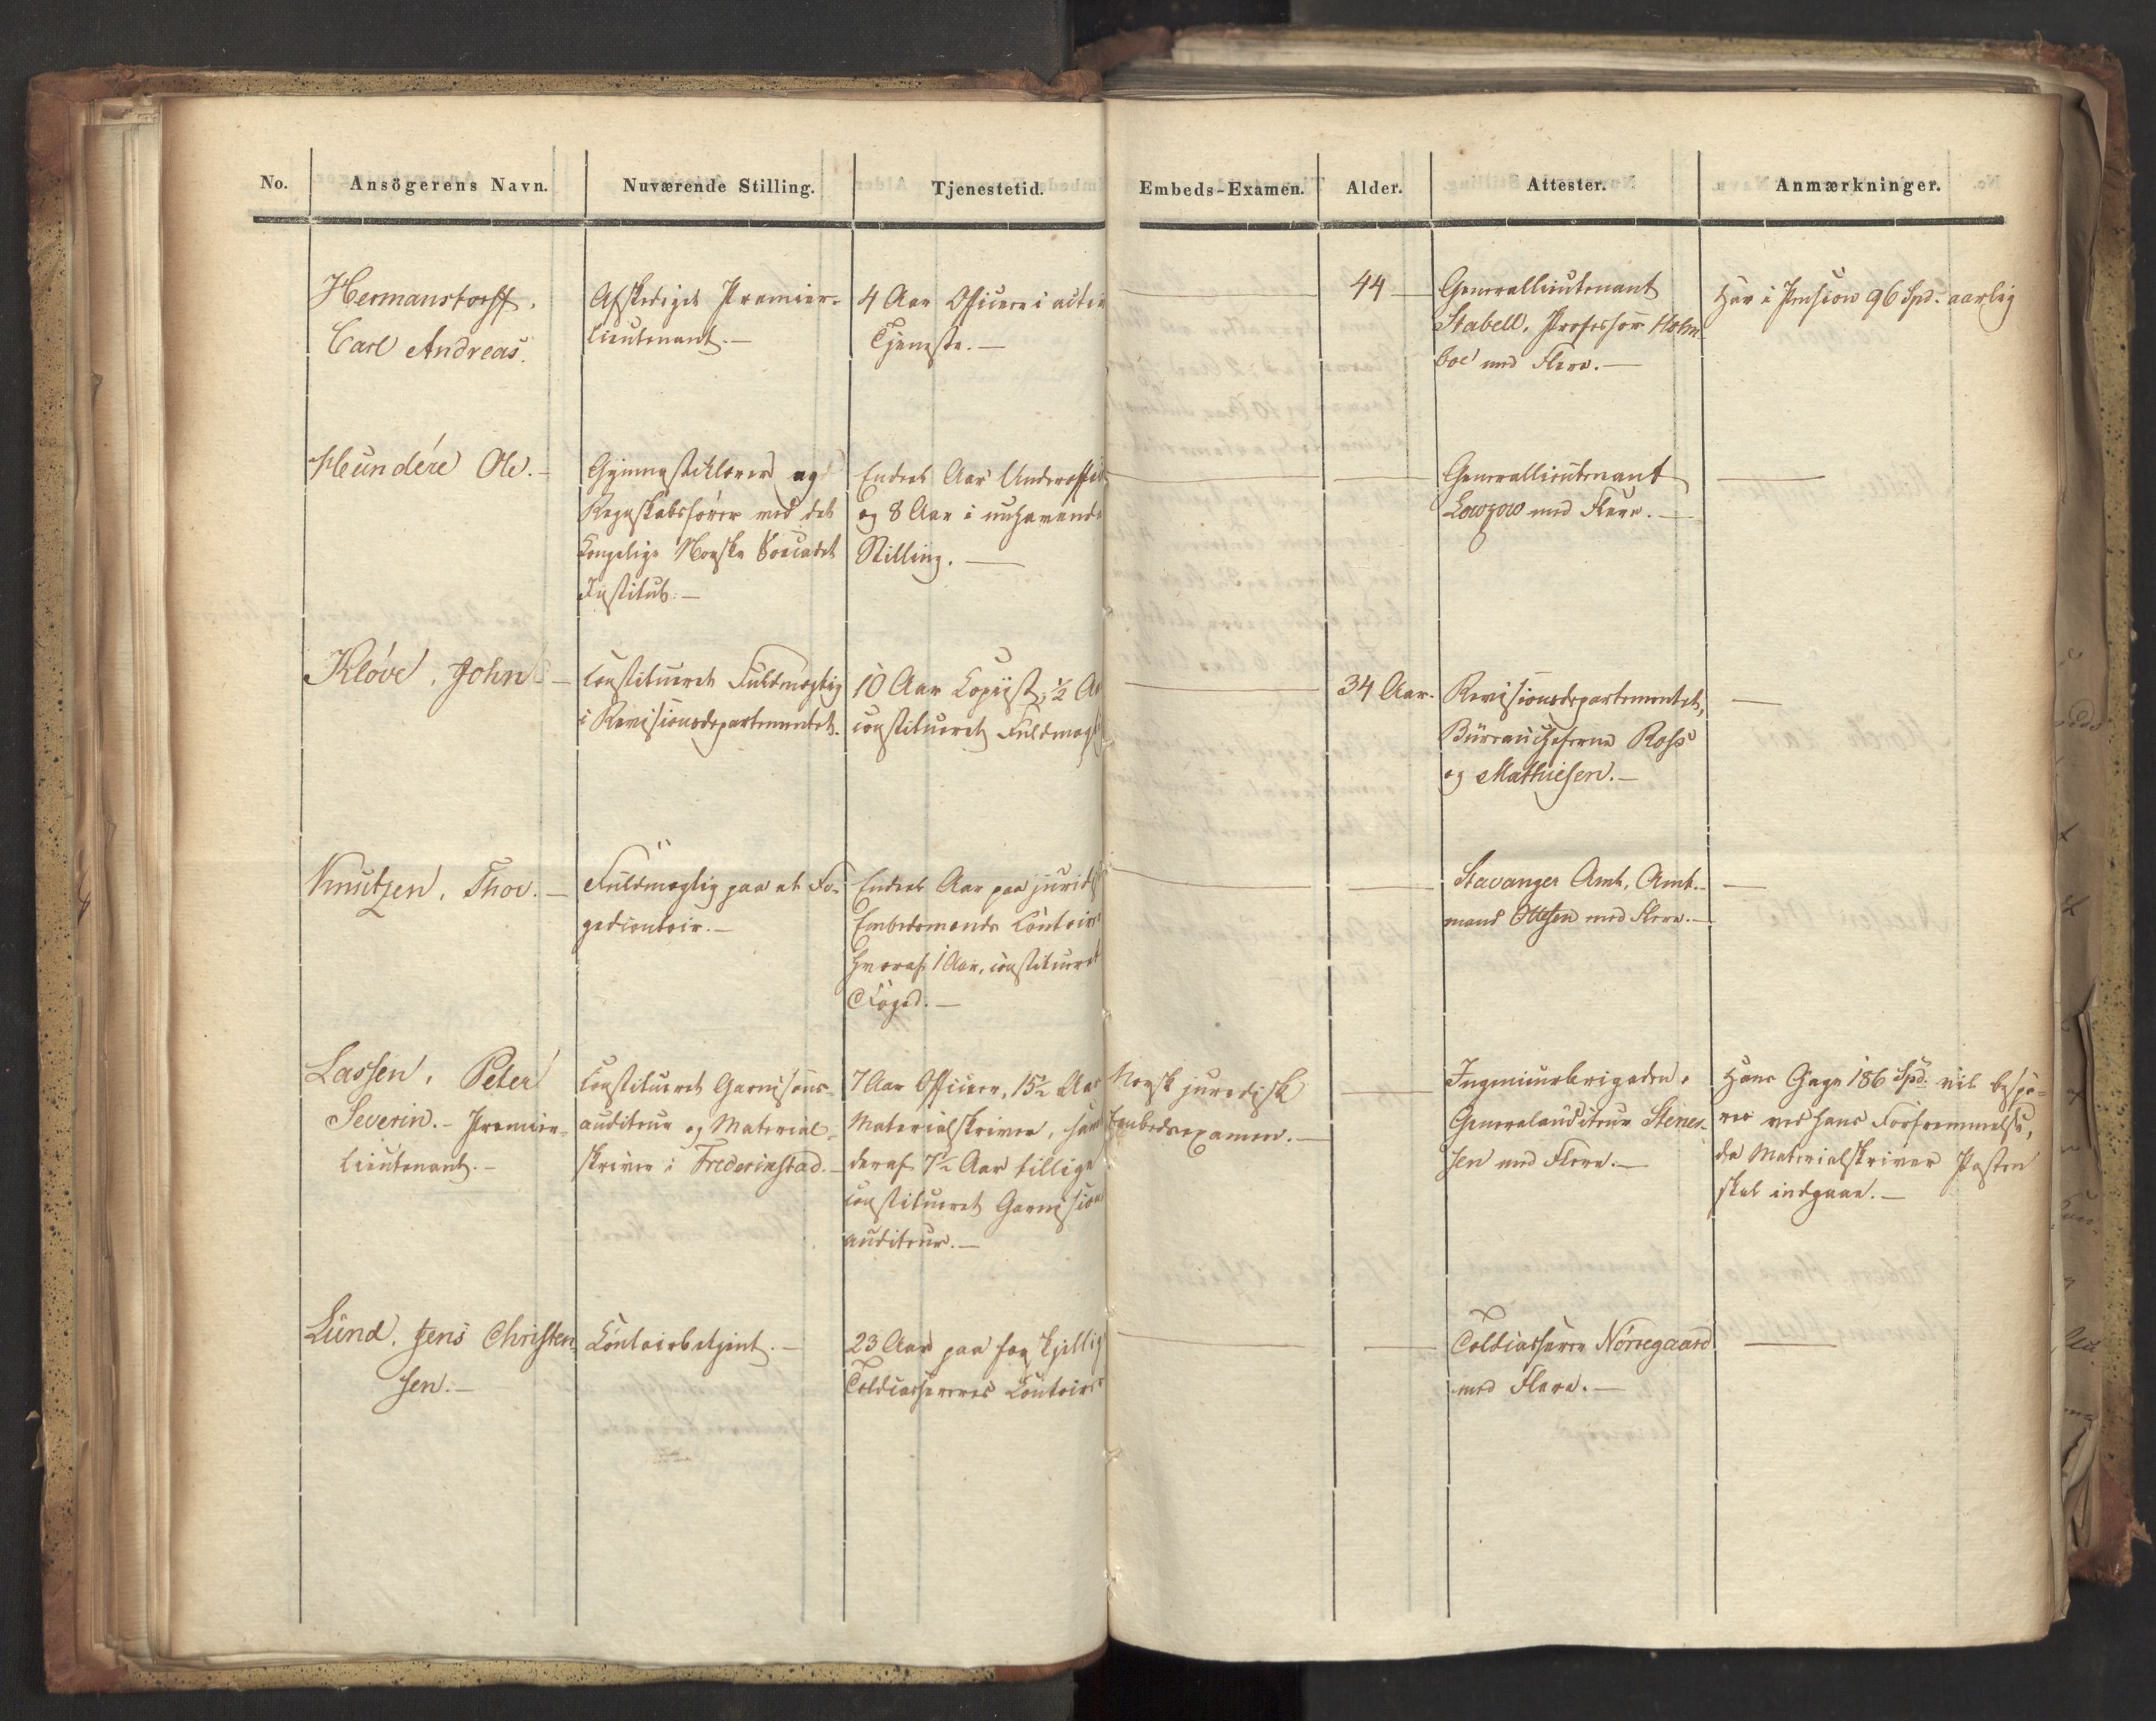 No. Ansögerens Navn. Nuværende Stilling. Tjenestetid. Embeds-Examen. Alder. Attester. Anmærkninger.
Hermanstorff,
Carl Andreas.
Afskediget Premier-
lieutenant.—
4 Aar Officeer i activ
Tjeneste.—
44
Generallieutenant
Stabell, Professor Holm-
boe med Flere.—
Har i Pension 96 Spd. aarlig
Hundere Ole.—
Gymnastiklærer og
Regnskabsfører ved det
Kongelige Norske
Institut.—
Endeel Aar
og 8 Aar i nuhavende
Stilling.—
Generallieutenant
Lowzow med Flere.—
Kløve, John—
Constitueret Fuldmægtig
i Revisionsdepartementet.
10 Aar Copiist, ½
constitueret
34 Aar.
Revisionsdepartementet,
Büreaucheferne Ross
og Mathiesen.—
Knutzen, Thor.—
Fuldmægtig paa et Fo-
gedcontoir.—
Endeel Aar paa
Embedsmænds Contoir
hvoraf 1 Aar, constitueret
Foged.—
Stavanger Amt, Amt-
mand Ottesen med Flere.—
Lassen, Peter
Severin.— Premier-
lieutenant.—
Constitueret Garnisons-
auditeur og Material-
skriver i Frederikstad.—
7 Aar Officeer, 15½ Aar
Materialskriver, samt
deraf 7½ Aar tillige
constitueret Garnisons
auditeur.—
Norsk juridisk
Embedsexamen.—
Ingenieurbrigaden,
Generalauditeur Stener-
sen med Flere.—
Hans Gage 186 Spd. vil bespa-
res ved hans Forfremmelse,
da Materialskriver Posten
skal indgaae.—
Lund, Jens Christen-
sen.—
Contoirbetjent.—
23 Aar paa forskjellig
Toldcassereres Contoir
Toldcasserer Nørregaard
med Flere.—